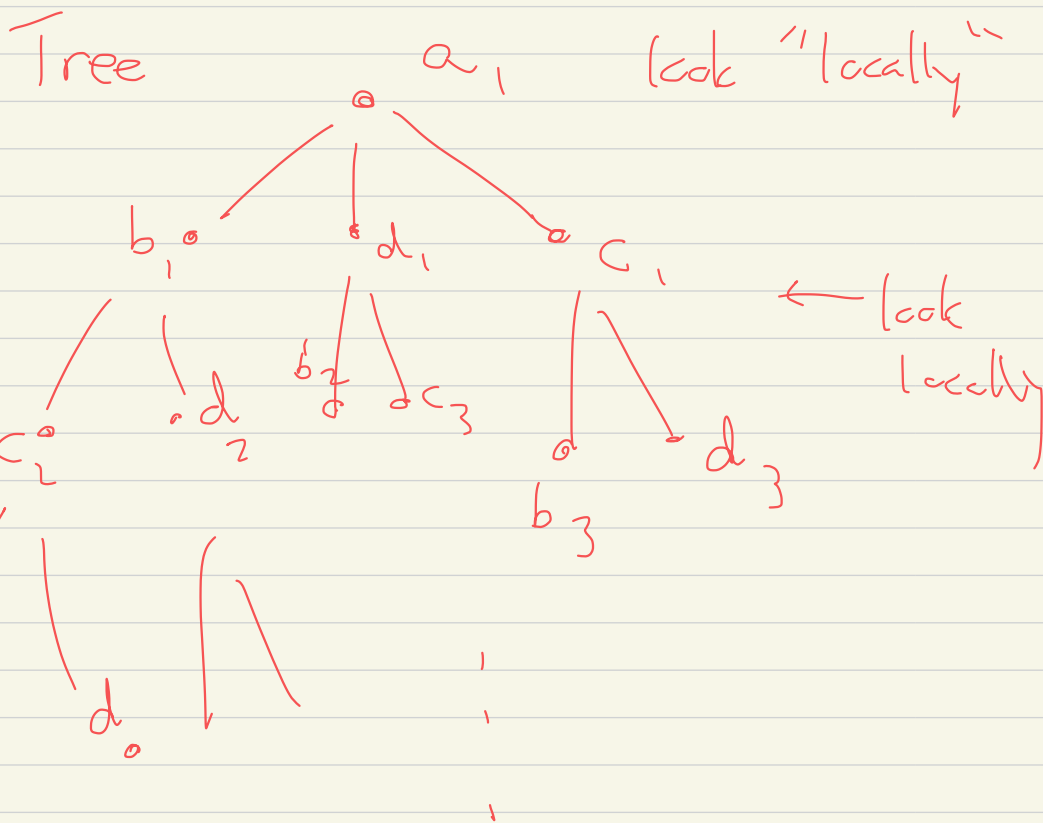 Tree a1 look "locally"
b1 d1 c1
look
locally
b2 c3
c2 d2 d3
b3
d